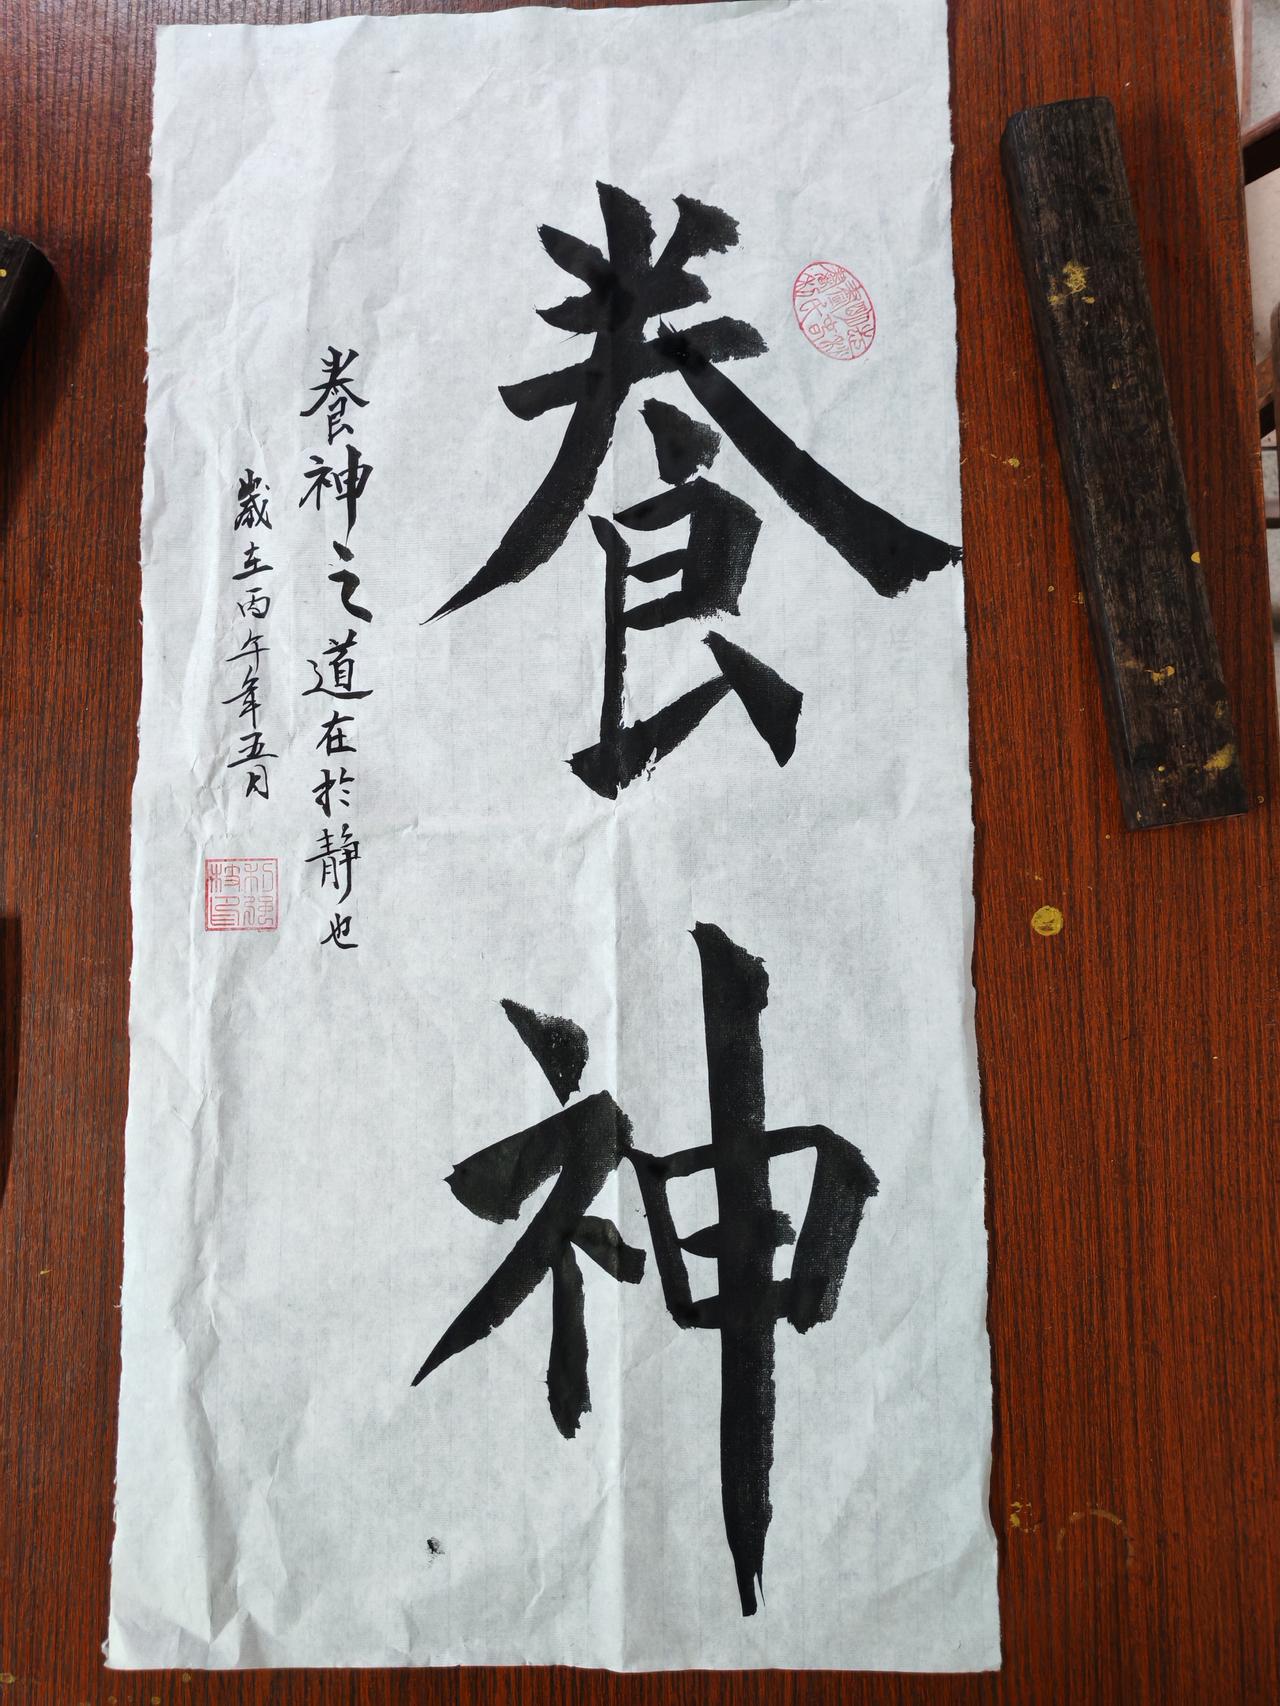 養神
養神之道在於靜也
歲在丙午年五月